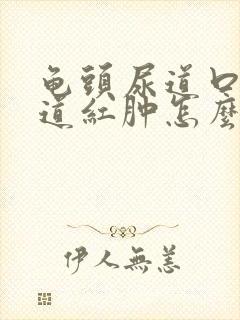 龟頭尿道口
道紅肿怎麼
伊人無恙